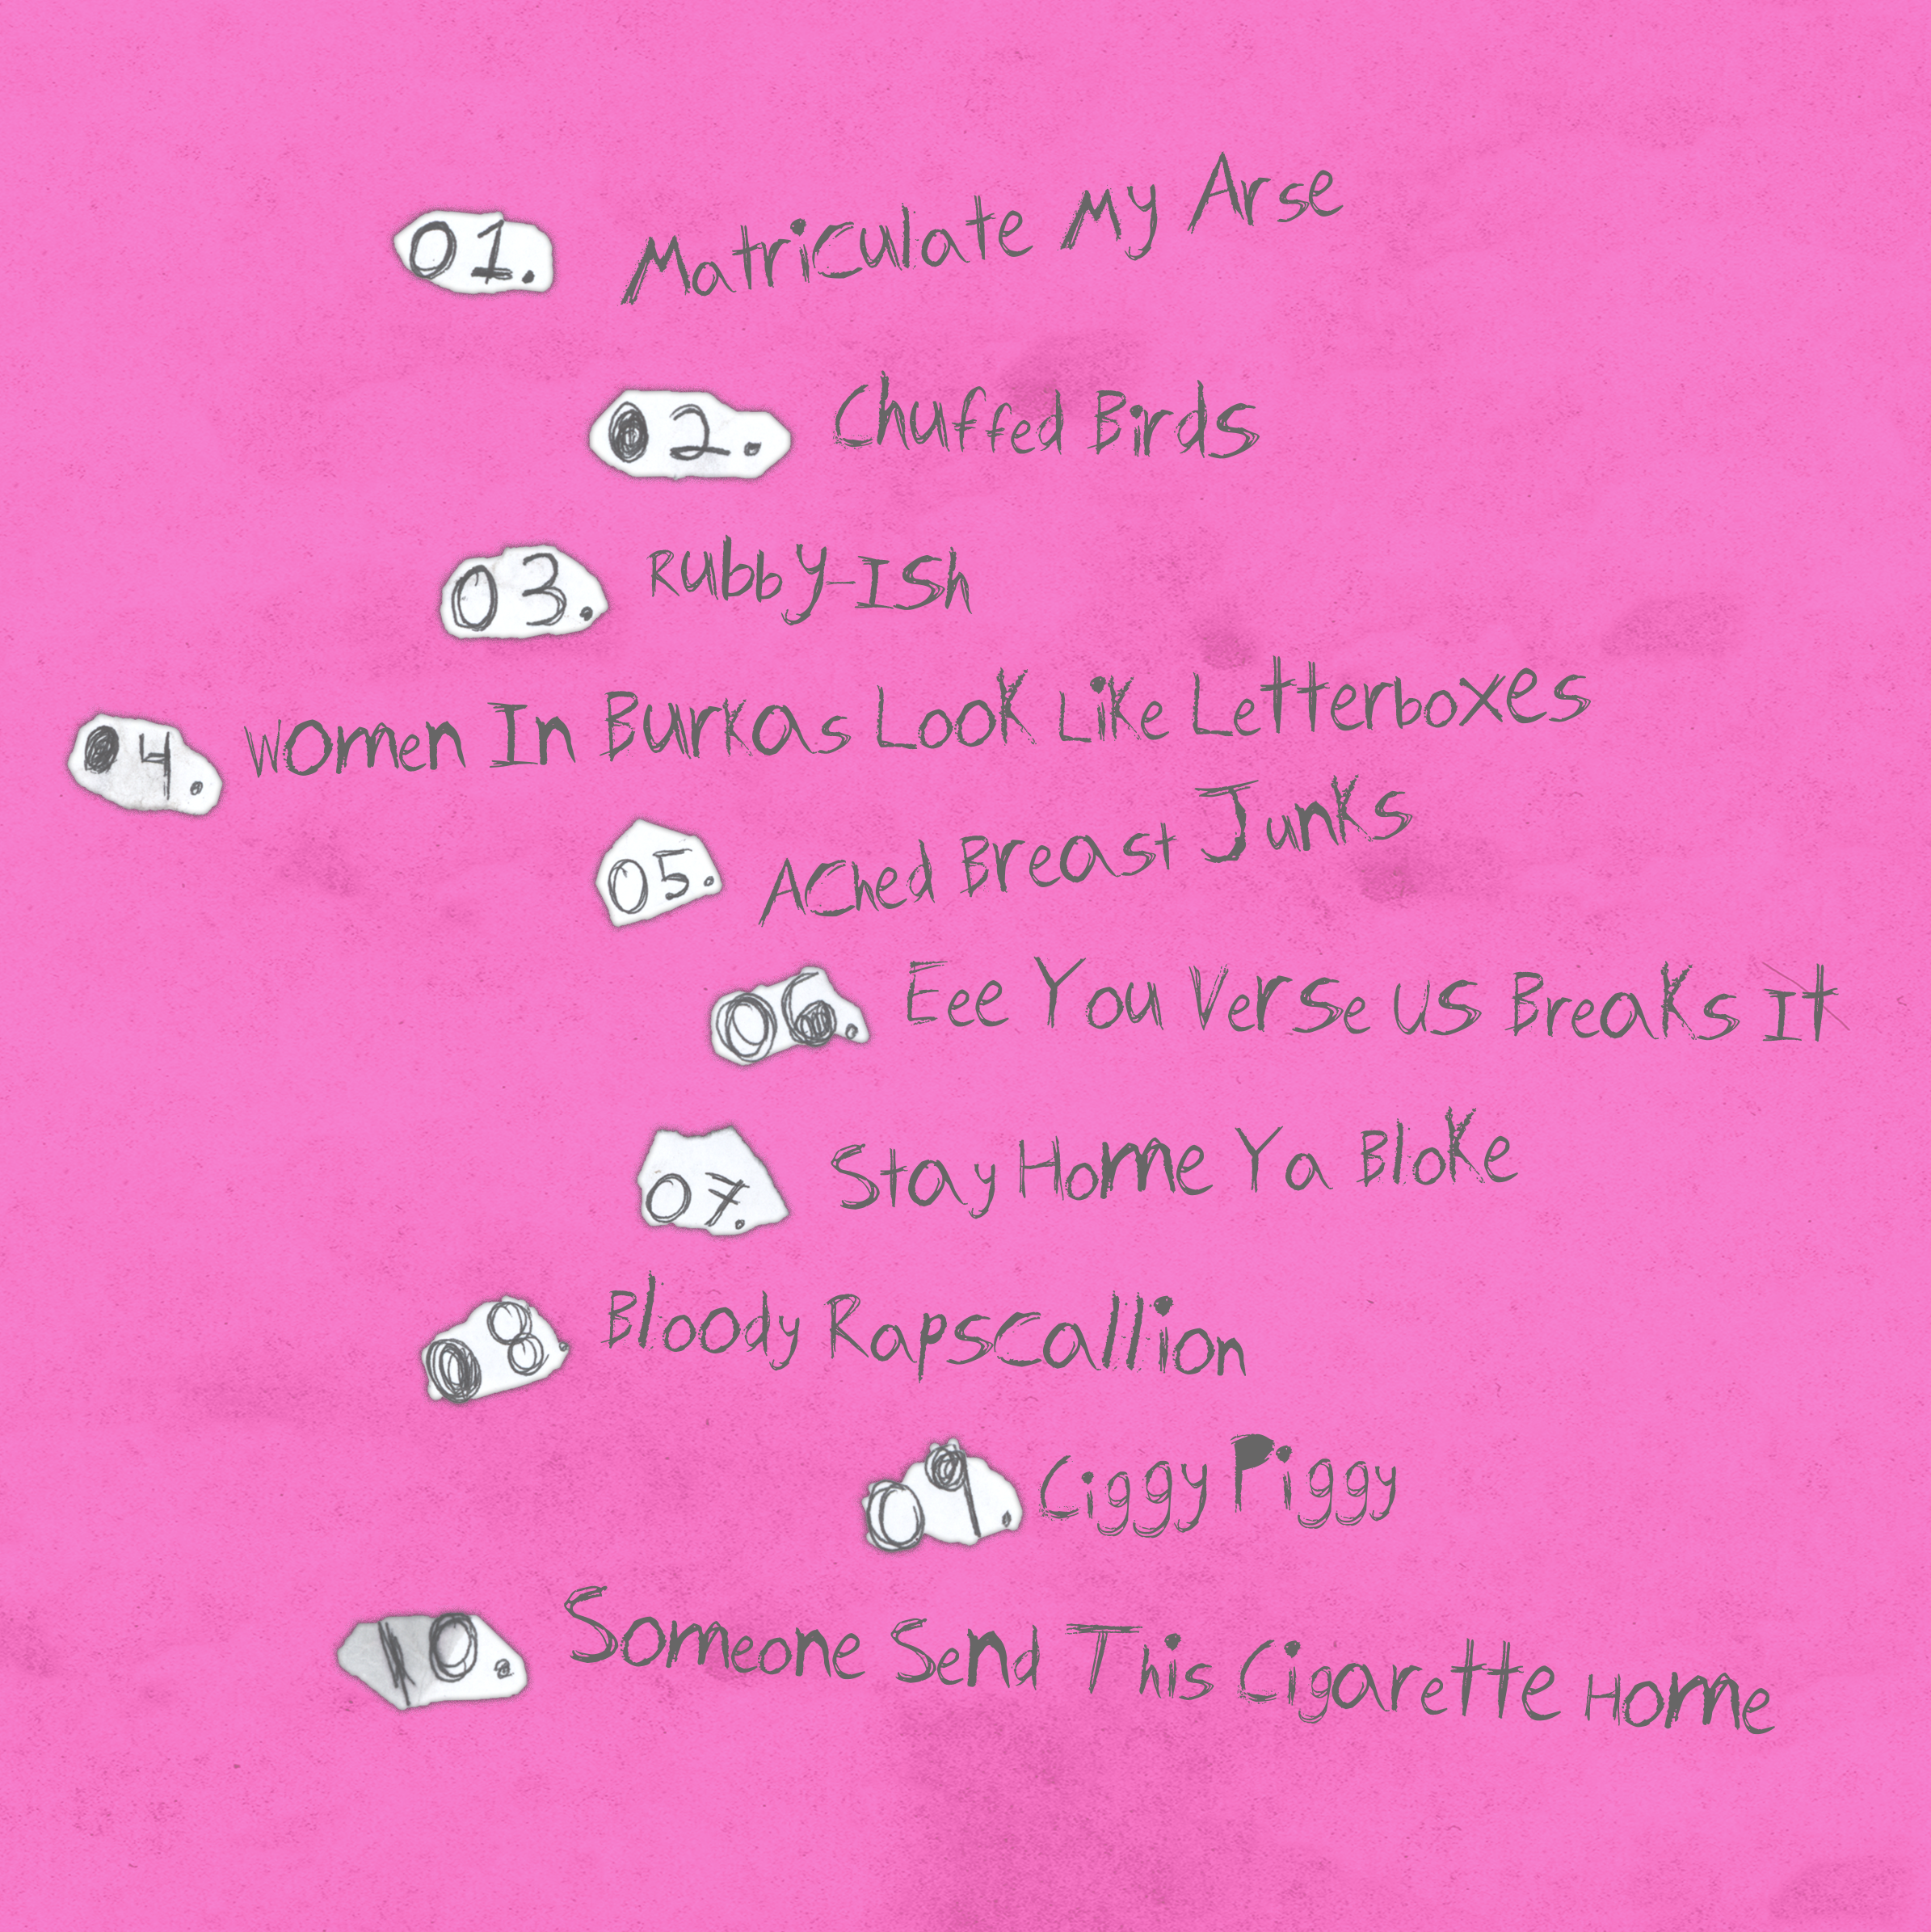 01. Matriculate My Arse
02. Chuffed Birds
03. Rubby-Ish
04. Women In Burkas Look Like Letterboxes
05. Ached Breast Junks
06. Eee You Verse us Breaks It
07. Stay Home Ya Bloke
08. Bloody Rapscallion
09. Ciggy Piggy
10. Someone Send This Cigarette Home